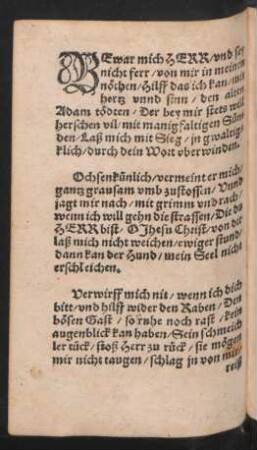 BEwar mich HERR / vnd sey
nicht ferr / von mir in meinen
nöthen / Hilff das ich kan / mit
hertz vnnd sinn / den alten
Adam tödten / Der bey mir stets will
herschen vil / mit manigfaltigen Sün-
den / Laß mich mit Sieg / jn gwaltig-
klich / durch dein Wort vberwinden.
Ochsenkünlich / vermeint er mich /
gantz grausam vmb zustossen / Vnnd
jagt mir nach / mit grimm vnd rach /
wenn ich will gehn die strassen / Die du
HERR bist / O Jhesu Christ / von dir
laß mich nicht weichen / ewiger stund /
dann kan der Hund / mein Seel nicht
erschleichen.
Verwirff mich nit / wenn ich dich
bitt / vnd hilff wider den Raben / Den
bösen Gast / so ruhe noch rast / kein
augenblick kan haben / Sein schmeich
ler tück / stoß Herr zu rück / sie mögen
mir nicht taugen / schlag jn von mir /
reiß